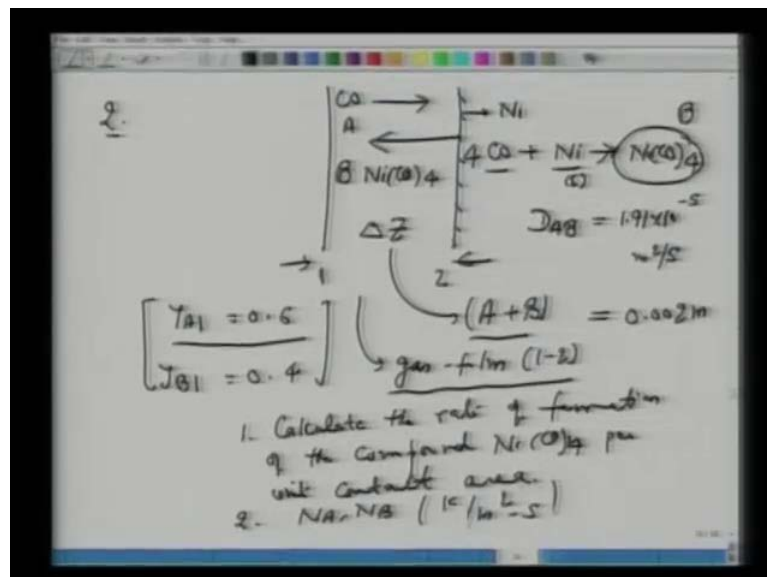 2.
CO → → Ni B
A ←
4 CO + Ni → Ni(CO)4
B Ni(CO)4 (s)
ΔZ D_AB = 1.91×10^-5
m²/s
→ 1 2 ←
y_A1 = 0.6 (A+B) = 0.002m
y_B1 = 0.4 gas-film (1-2)
1. Calculate the rate of formation
of the compound Ni(CO)4 per
unit contact area.
2. NA, NB ( /m²-s)